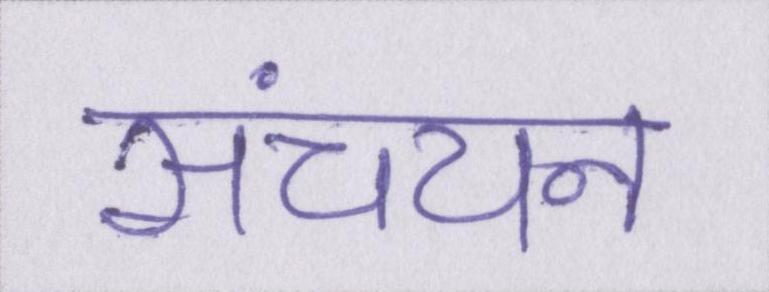 संचयन